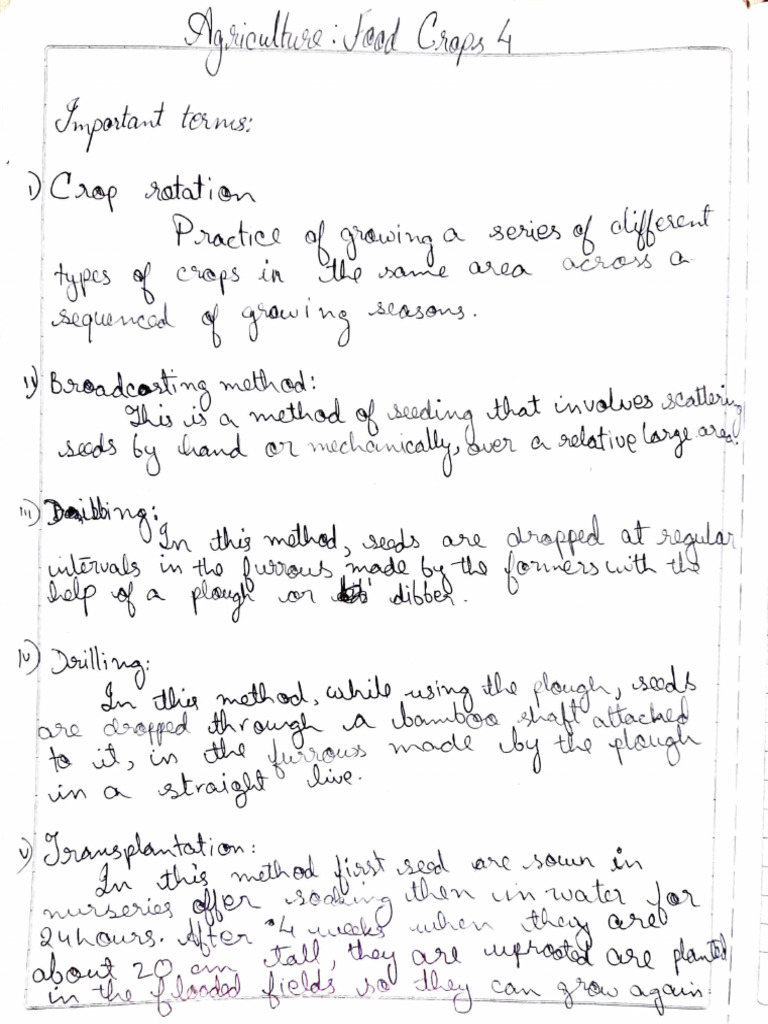 Agriculture: Food Crops 4
Important terms:
i) Crop rotation
Practice of growing a series of different
types of crops in the same area across a
sequenced of growing seasons.
ii) Broadcasting method:
This is a method of seeding that involves scattering
seeds by hand or mechanically, over a relative large area.
iii) Dibbing:
In this method, seeds are dropped at regular
intervals in the furrous made by the formers with the
help of a plough or dibber.
iv) Drilling:
In this method, while using the plough, seeds
are dropped through a bamboo shaft attached
to it, in the furrous made by the plough
in a straight live.
v) Transplantation:
In this method first seed are sown in
nurseries offer soaking then in water for
24 hours. After 4 weeks when they are
about 20 cm tall, they are uprooted are planted
in the flooded fields so they can grow again.